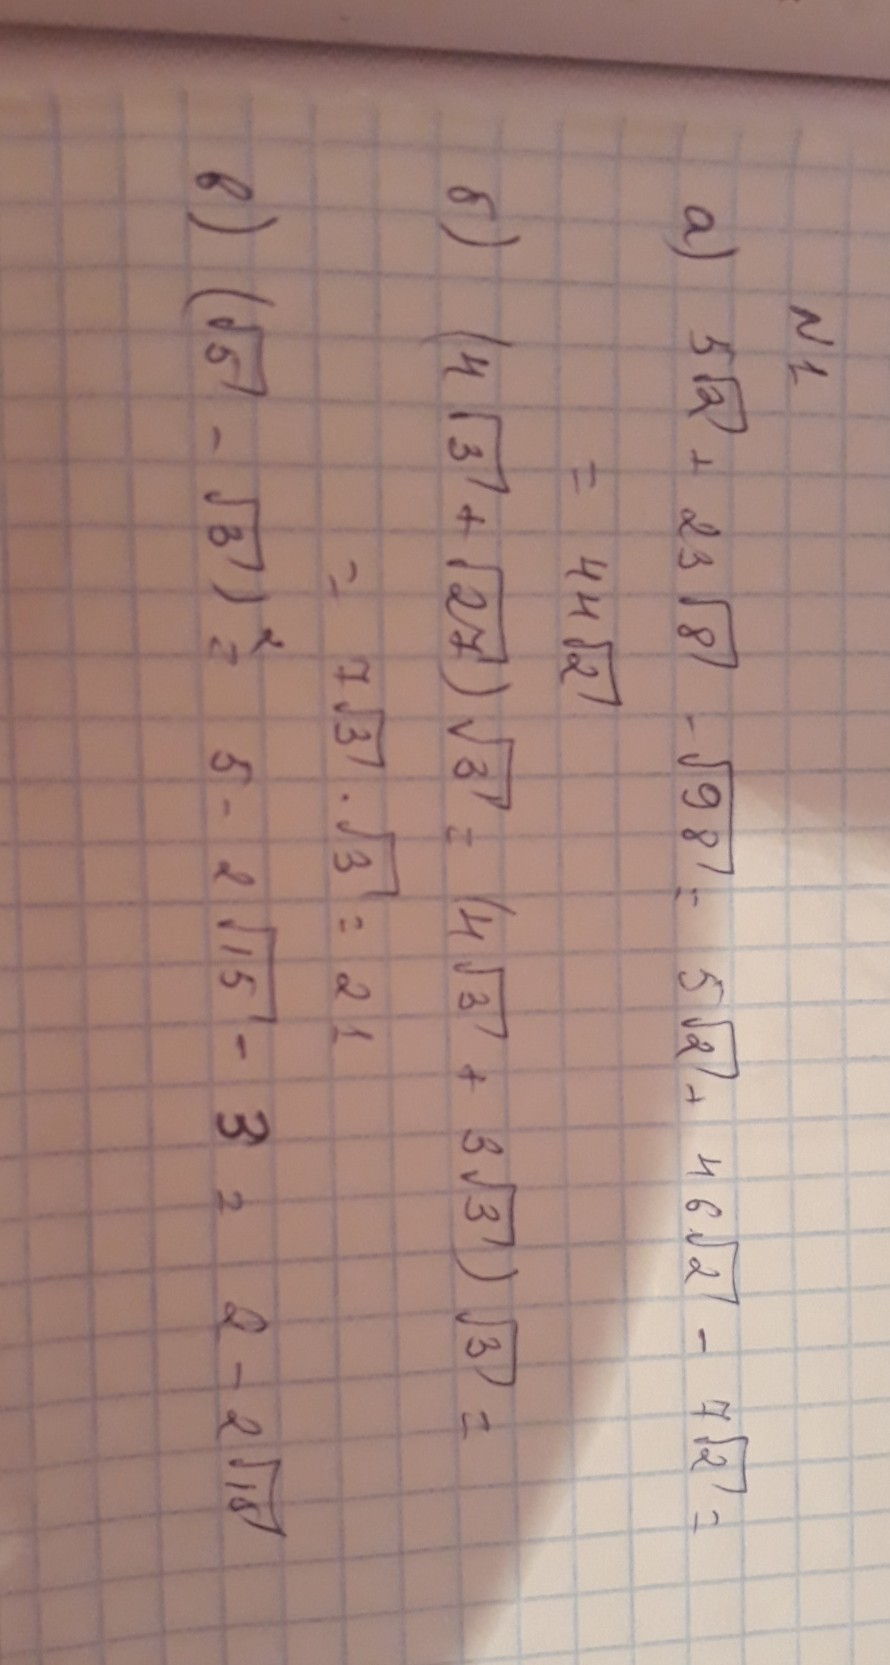 N 1
а) 5√2 + 23√8 - √98 = 5√2 + 46√2 - 7√2 =
= 44√2
б) (4√3 + √27)√3 = (4√3 + 3√3)√3 =
= 7√3 · √3 = 21
в) (√5 - √3)² = 5 - 2√15 - 3 = 2 - 2√15